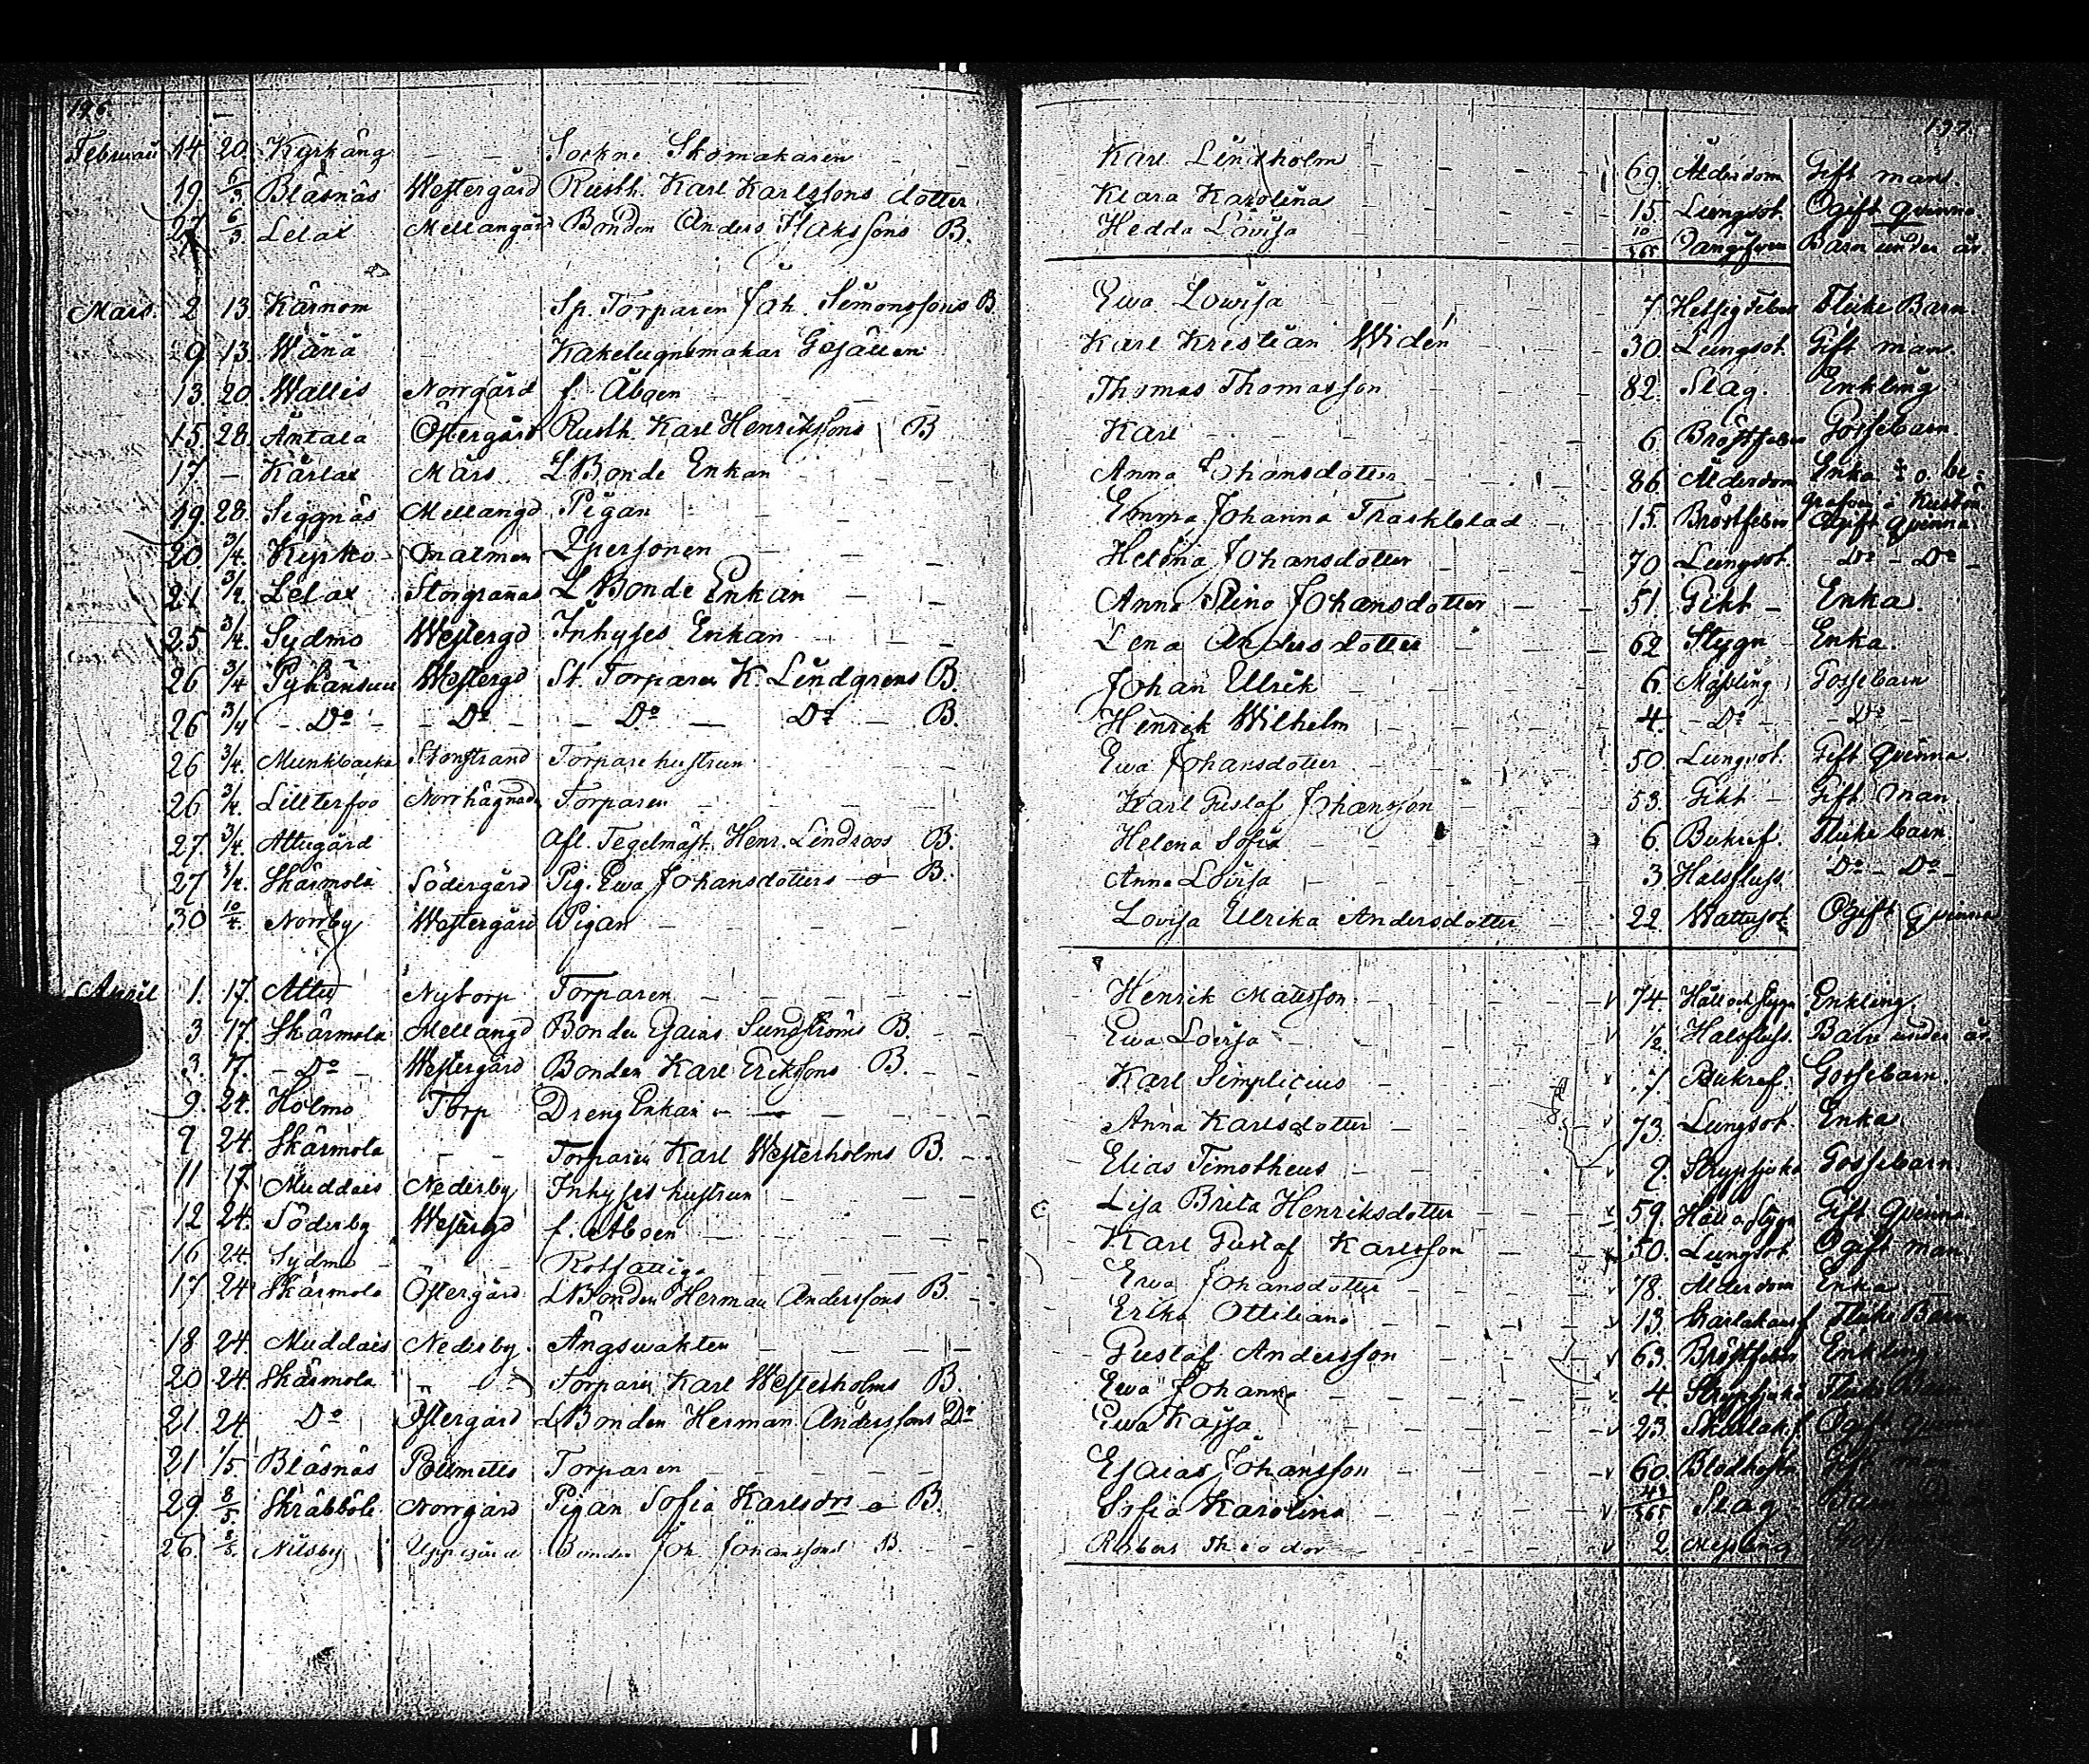 196.
197.
Februari 14. 20. Kyrkäng - - Sockne Skomakaren - - Karl Lindholm - - 69. Ålderdom Gift man.
19. 6/3 Bläsnäs Westergård Rusth. Karl Karlssons dotter Klara Karolina - - 15. Lungsot. Ogift qvinna
27 6/3 Lelax Mellangård Bonden Anders Isakssons B. Hedda Lovisa - - 10/365 Barn under år.
Mars. 2 13 Kärnom Sp. Torparen Joh. Simonssons B. Ewa Lowisa - - 7 Hetsig Feber Flicke Barn.
9 13. Wånå Kakelugnsmakar Gesällen Karl Kristian Widén - - 30. Lungsot. Gift man.
13. 20. Wallis Norrgård f. Åboen - - Thomas Thomasson - - 82. Slag. Enkling
15. 28. Antala Östergård Rusth. Karl Henrikssons B Karl - - 6 Bröstfeber Gossebarn.
17 - Kärlax Mårs L Bonde Enkan - - Anna Johansdotter - - 86 Ålderdom Enka † o. be-
grafven i Kustö.
19. 28. Siggnäs Mellangd Pigan - - Emma Johanna Traskblad - 15. Bröstfeber Ogift qvinna.
20. 3/4. Kyrko- malmen Lpersonen - - Helena Johansdotter - - 70 Lungsot. - Do - Do -
21 3/4. Lelax Storgrannas L Bonde Enkan - - Anna Stina Johansdotter - - 51. Gikt - Enka.
25 3/4. Sydmo Westergd Inhyses Enkan - - Lena Andersdotter - - 62 Stygn Enka.
26 3/4 Westergd St. Torparen K. Lindgrens B. Johan Ulrik - - 6 Messling Gossebarn
26 3/4 - Do - - Do - - Do - Do - B. Henrik Wilhelm - - 4. - Do - - Do -
26 3/4. Munkbacka Storstrand Torpare hustrun - - Ewa Johansdotter - - 50. Lungsot. Gift Qvinna
26 3/4. Lillterfvo Norrhägnad Torparen - - Karl Gustaf Johansson - - 53. Gikt - Gift Man.
27. 3/4. Attugård Afl. Tegelmäst. Henr. Lindroos B. Helena Sofia - - 6. Bukref. Flicke barn.
27 3/4. Skärmola Södergård Pig. Ewa Johansdotters o B. Anna Lovisa - - 3. Halsfluss Do - Do -
30 10/4. Norrby Westergård Pigan - - Lovisa Ulrika Andersdotter - - 22. Wattusot. Ogift Qvinna
April 1. 17. Attu Nytorp Torparen - - Henrik Matsson - - v 74. Håll och stygn Enkling.
3 17. Skärmola Mellangd Bonden Esaias Sundströms B. - - Ewa Lovisa - - v 1/2. Halsfluss. Barn under år.
3. 17. - Do - Westergård Bonden Karl Erikssons B. - - Karl Simplicius - - v 7 Bukref. Gossebarn.
9. 24. Holmo Torp Dreng Enkan - - Anna Karlsdotter - - 73. Lungsot. Enka.
9 24. Skärmola - - Torparen Karl Westerholms B. - - Elias Timotheus - - v 9. Strypsjuka Gossebarn.
11 17. Muddais Nederby Inhyses hustrun - - Lisa Brita Henriksdotter - - v 59. Håll o. Stygn Gift Qvinna.
12 24. Söderby Westergd f. Åboen - - Karl Gustaf Karlsson - - v 50. Lungsot Ogift man.
16 24. Sydmo - - Rotfattiga - - Ewa Johansdotter - - v 78. Ålderdom Enka.
17. 24 Skärmola Östergård LBonden Herman Anderssons B. - Erika Ottiliana - - v 13. Skarlakansf. Flicke Barn
18 24. Muddais Nederby. Ängswakten - - Gustaf Andersson - - v 63. Bröstfeber Enkling
20 24. Skärmola - - Torparen Karl Westerholms B. Ewa Johanna - - v 4. Strypsjuka Flicke Barn
21 24 Do Östergård LBonden Herman Anderssons Dr Ewa Kajsa - - v 23. Skarlak.f. Ogift qvinna
21 1/5 Bläsnäs Torparen - - Esaias Johansson - - v 60. Gift man
29. 8/5 Skräbböle Norrgård Pigan Sofia Karlsdrs o B. Sofia Karolina - - v /365 Slag - Barn
26. 8/5. Nilsby Uppigård Bonden Joh. Johanssons B. - - Robert Theodor - - v 2. Messling